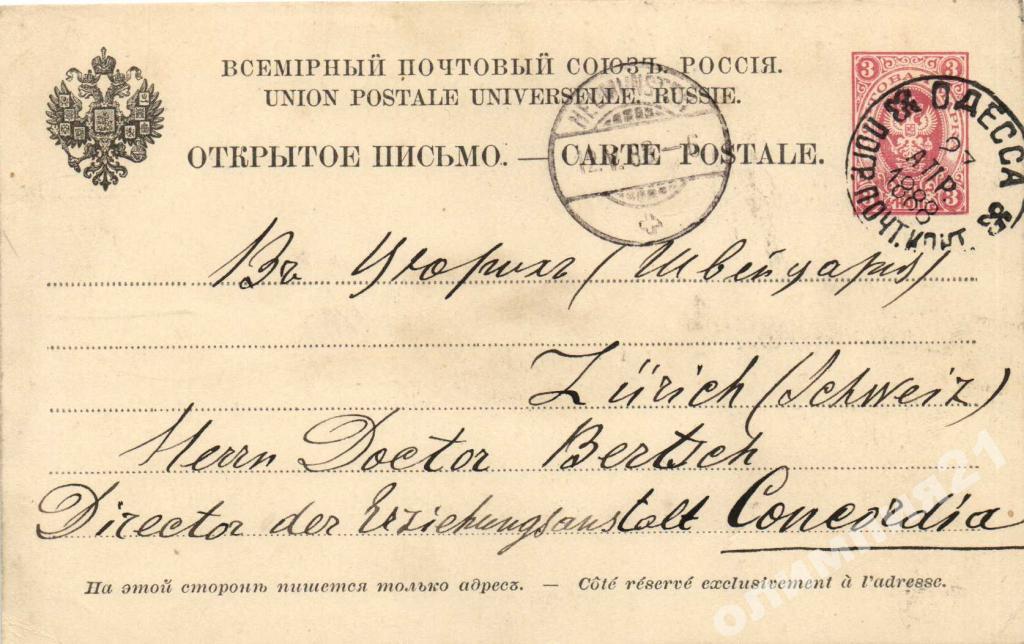 ВСЕМІРНЫЙ ПОЧТОВЫЙ СОЮЗЪ. РОССІЯ.
UNION POSTALE UNIVERSELLE. RUSSIE.
ОТКРЫТОЕ ПИСЬМО. — CARTE POSTALE.
3 3
3
ОДЕССА
АПР
1888
ПОЧТ. КОНТ.
Въ Цюрихъ (Швейцарія)
Zürich (Schweiz)
Herrn Doctor Bertsch
Director der Erziehungsanstalt Concordia
На этой сторонѣ пишется только адресъ. — Côté réservé exclusivement à l'adresse.
олимпия21